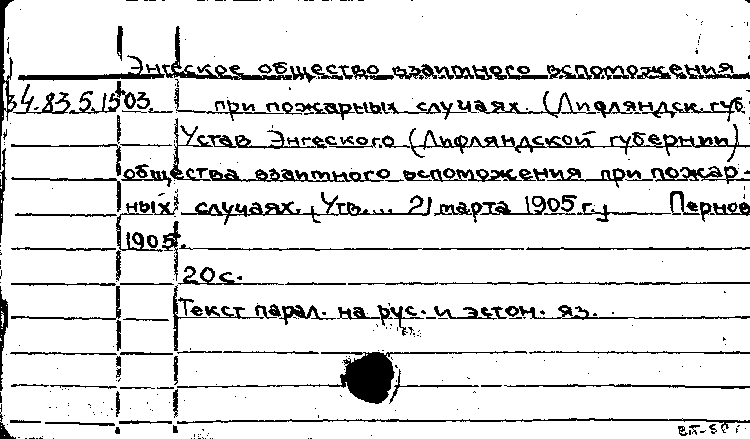 Энгеское общество взаимного вспоможения
34.83.5.1503. при пожарных случаях. (Лифляндск. губ.
Устав Энгеского (Лифляндской губернии)
общества взаимного вспоможения при пожар-
ных случаях. [Утв.... 21 марта 1905 г.] Пернов
1905.
20 с.
Текст парал. на рус. и эстон. яз.